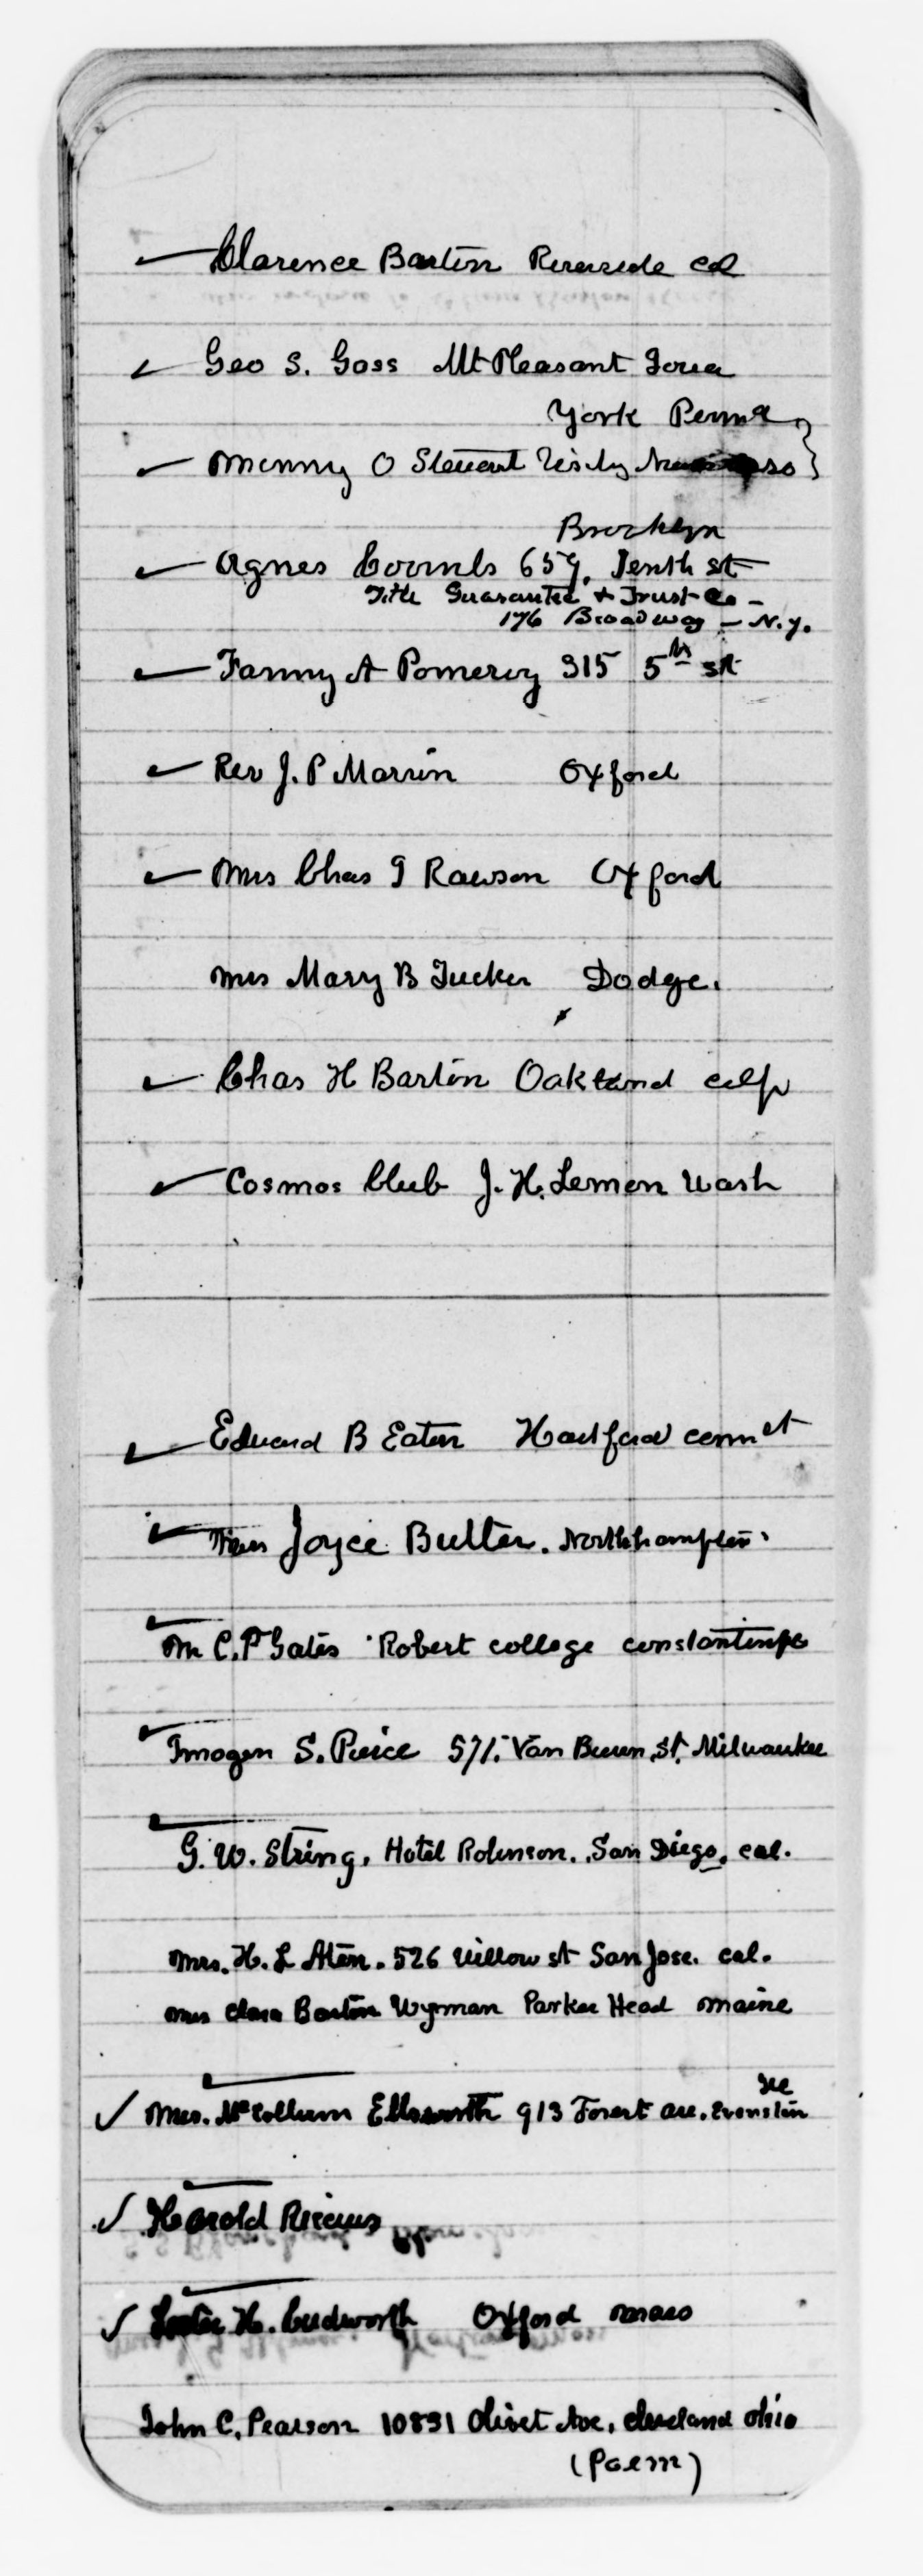 Clarence Barton Riverside Cal
Geo S. Goss Mt Pleasant Iowa
York Penna
Minny O Stewart
Brooklyn
Agnes Coombs 659, Tenth st
Title Guarantee & Trust Co -
176 Broadway - N.Y.
Fanny A Pomeroy 315 5th st
Rev J. P Marvin Oxford
Mrs Chas G Rawson Oxford
Mrs Mary B Tucker Dodge.
Chas H Barton Oakland
Cosmos Club J. H. Lemon Wash
Edward B Eaton Hartford
Joyce Butler. Northhampton
C. P Gates Robert college
Imogen S. Peirce 571. Van Buren St. Milwaukee
G. W. String, Hotel Robinson. San Diego, cal.
Mrs. H. L Aten. 526 Willow st San Jose. cal.
Mrs Clara Barton Wyman Parker Head Maine
Ill
Mrs. McCollum Ellsworth 913 Forest ave. Evanston
Harold
H. Cudworth Oxford Mass
John C. Pearson 10831 Olivet Ave, Cleveland Ohio
(Poem)